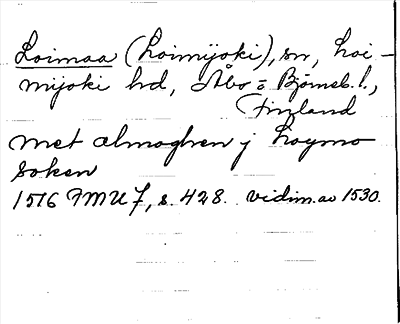 Loimaa (Loimijoki), sn, Loi-
mijoki hd, Åbo o Björneb. l.,
Finland
met almoghen j Loymo
soken
1516 FMU 7, s. 428. vidim. av 1530.